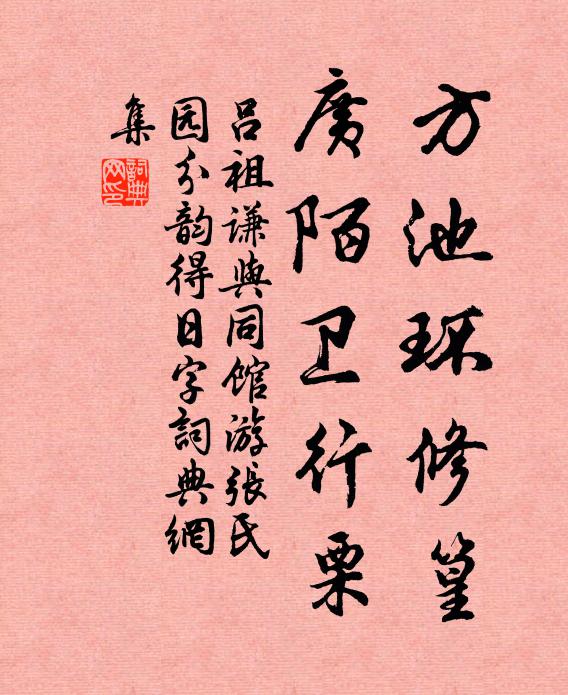 方池环修篁
廣陌卫行栗
吕祖谦與同館游張氏
园分韵得日字詞典網
集
詞典网印